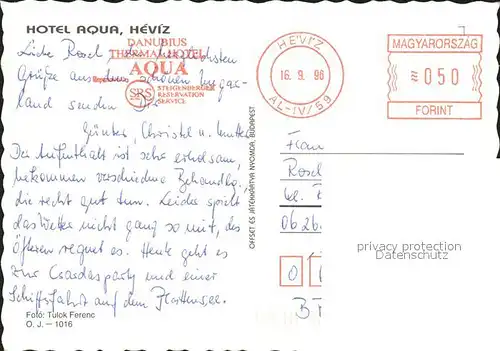 HOTEL AQUA, HÉVÍZ
DANUBIUS
THERMAL HOTEL
AQUA
SRS STEIGENBERGER
RESERVATION
SERVICE
HÉVÍZ
16. 9. 96
AL-IV/59
MAGYARORSZÁG
050
FORINT
Liebe Rosel, die herzlichsten
Grüße aus dem schönen Ungar-
land senden Dir
Günter, Christel u. Mutter
Der Aufenthalt ist sehr erholsam,
bekommen verschiedene Behandlg.,
die recht gut tun. Leider spielt
das Wetter nicht ganz so mit, des
Öfteren regnet es. Heute geht es
zur Csardasparty und einer
Schiffsfahrt auf dem Plattensee.
Foto: Tulok Ferenc
O. J. — 1016
OFFSET ÉS JÁTÉKKÁRTYA NYOMDA, BUDAPEST
Frau
Rosel
0626
privacy protection
Datenschutz
0